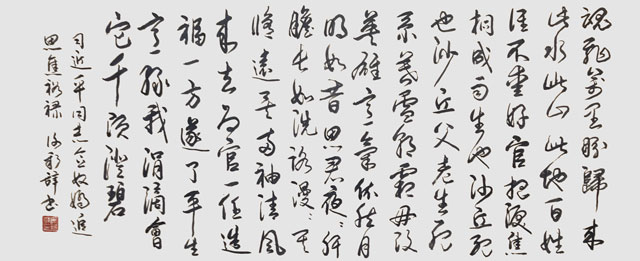 魂飛萬里盼歸來
此水此山此地百姓
誰不愛好官把淚焦
桐成雨生也沙丘死
也沙丘父老生死
系暮雪朝霜毋改
英雄意氣依然月
明如昔思君夜々肝
膽長如洗路漫々其
修遠矣兩袖清風
來去為官一任造
福一方遂了平生
意緑我涓滴會
它千頃澄碧
习近平同志念奴嬌追
思焦裕禄 书